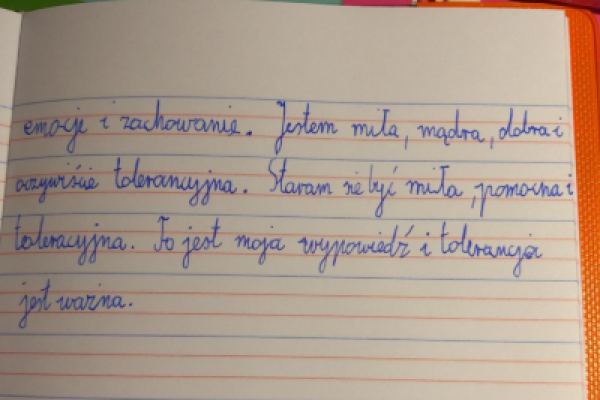 emocje i zachowanie. Jestem miła, mądra, dobra i
oczywiście tolerancyjna. Staram się być miła, pomocna i
toleracyjna. To jest moja wypowiedź i tolerancja
jest ważna.